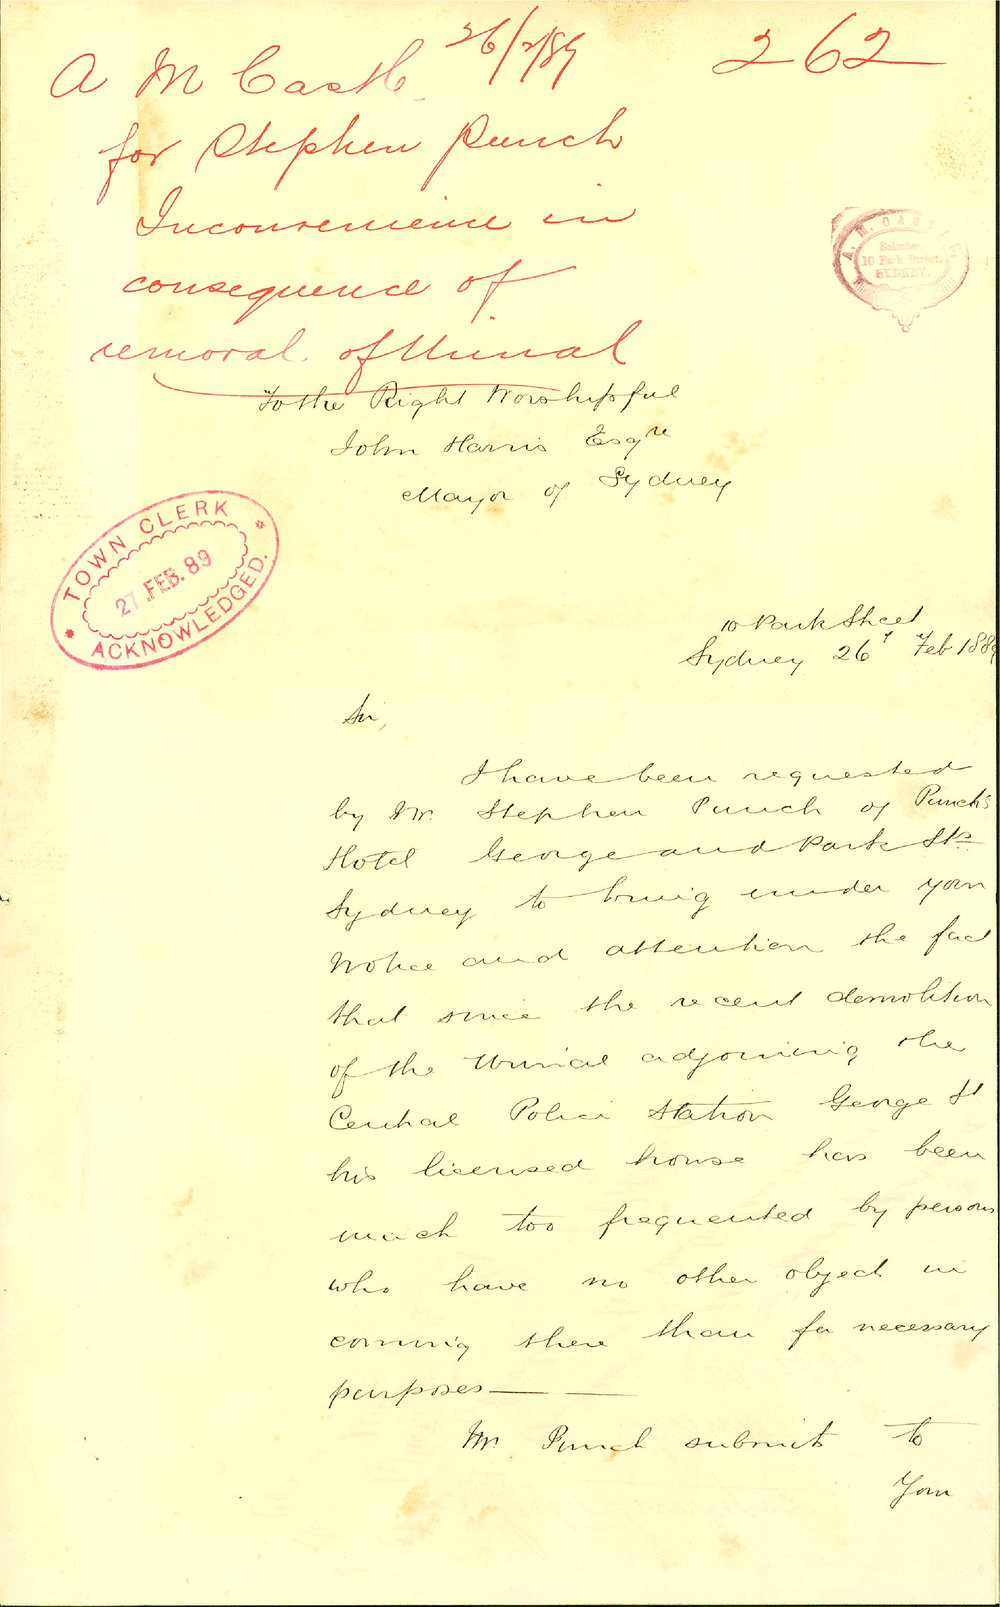 A M Castle 26/2/89 262
for Stephen Punch
Inconvenience in
consequence of
removal of Urinal
Solicitor,
10 Park Street,
SYDNEY.
To the Right Worshipful
John Harris Esqre
Mayor of Sydney
TOWN CLERK
27 FEB. 89
ACKNOWLEDGED.
10 Park Street
Sydney 26 Feb 1889
Sir,
I have been requested
by Mr. Stephen Punch of Punch's
Hotel George and Park Sts
Sydney to bring under your
Notice and attention the fact
that since the recent demolition
of the Urinal adjoining the
Central Police Station George St
his licensed house has been
much too frequented by persons
who have no other object in
coming there than for necessary
purposes——
Mr. Punch submits to
Your